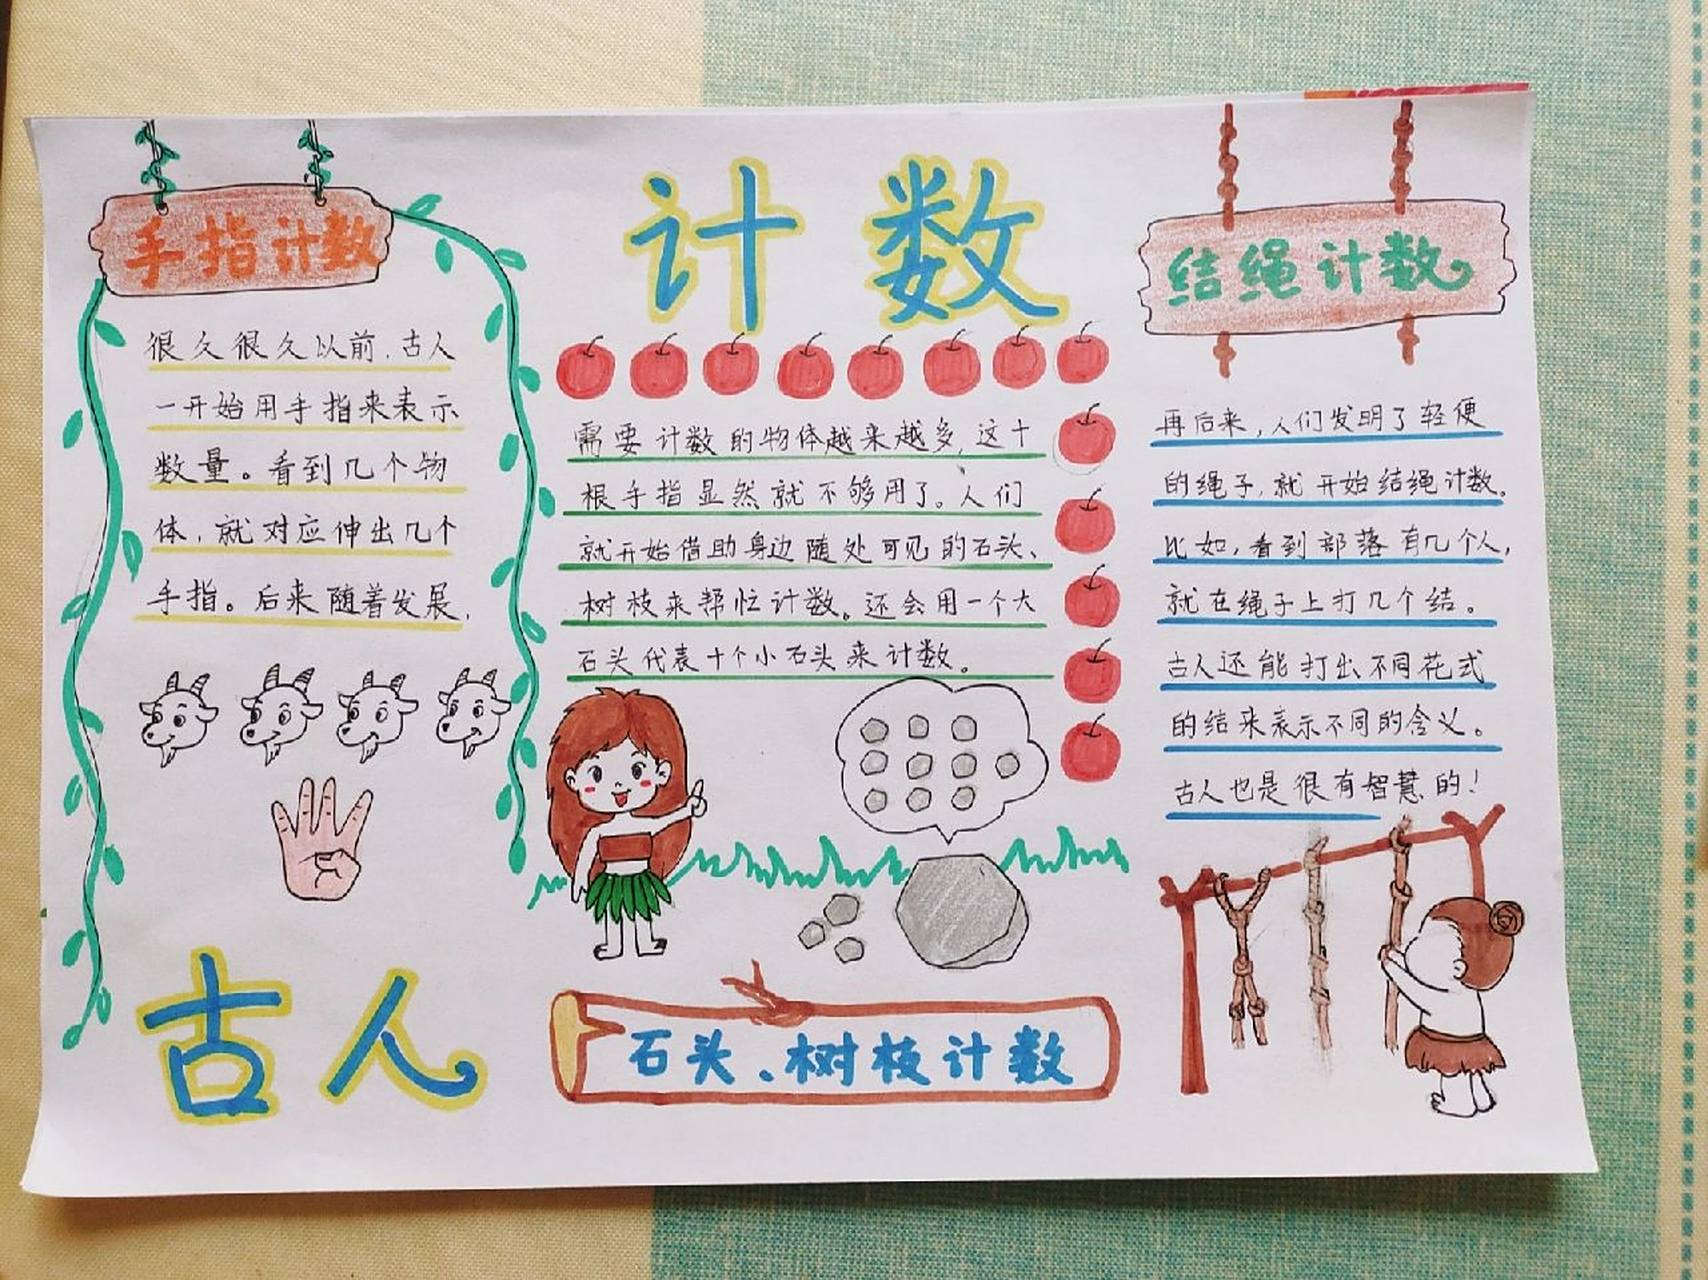 计数
手指计数
很久很久以前,古人
一开始用手指来表示
数量。看到几个物
体,就对应伸出几个
手指。后来随着发展,
古人
需要计数的物体越来越多,这十
根手指显然就不够用了。人们
就开始借助身边随处可见的石头、
树枝来帮忙计数。还会用一个大
石头代表十个小石头来计数。
石头、树枝计数
结绳计数
再后来,人们发明了轻便
的绳子,就开始结绳计数。
比如,看到部落有几个人,
就在绳子上打几个结。
古人还能打出不同花式
的结来表示不同的含义。
古人也是很有智慧的!